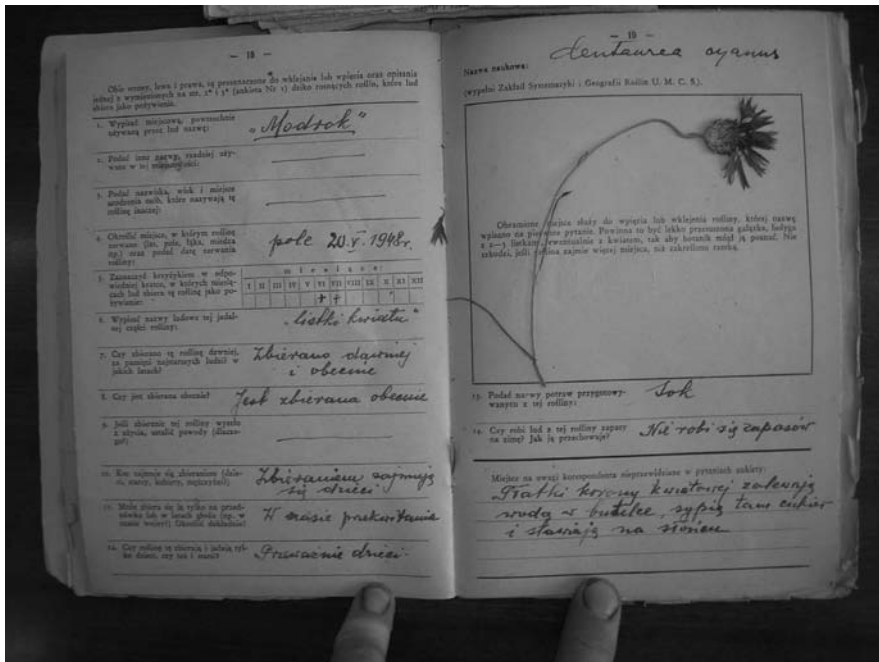 — 18 —
Obie strony, lewa i prawa, są przeznaczone do wklejania lub wpięcia oraz opisania
jednej z wymienionych na str. 2* i 3* (ankieta Nr 1) dziko rosnących roślin, które lud
zbiera jako pożywienie.
1. Wypisać miejscową, powszechnie
używaną przez lud nazwę:
„Modrok”
2. Podać inne nazwy, rzadziej uży-
wane w tej miejscowości:
3. Podać nazwiska, wiek i miejsce
urodzenia osób, które nazywają tę
roślinę inaczej:
4. Określić miejsce, w którym roślinę
zerwano (las, pole, łąka, miedza
np.) oraz podać datę zerwania
rośliny:
pole 20.V.1948r.
5. Zaznaczyć krzyżykiem w odpo-
wiedniej kratce, w których miesią-
cach lud zbiera tę roślinę jako po-
żywienie:
miesiące:
I II III IV V VI VII VIII IX X XI XII
+ +
6. Wypisać nazwy ludowe tej jadal-
nej części rośliny:
„listki kwiatu”
7. Czy zbierano tę roślinę dawniej,
za pamięci najstarszych ludzi? w
jakich latach?
Zbierano dawniej
i obecnie
8. Czy jest zbierana obecnie?
Jest zbierana obecnie
9. Jeśli zbieranie tej rośliny wyszło
z użycia, ustalić powody (dlacze-
go?)
10. Kto zajmuje się zbieraniem (dzie-
ci, starcy, kobiety, mężczyźni?)
Zbieraniem zajmują
się dzieci
11. Może zbiera się ją tylko na przed-
nówku lub w latach głodu (np. w
czasie wojny)? Określić dokładnie!
W czasie przekwitania
12. Czy roślinę tę zbierają i jadają tyl-
ko dzieci, czy też i starsi?
Przeważnie dzieci.
— 19 —
Nazwa naukowa: Centaurea cyanus
(wypełni Zakład Systematyki i Geografii Roślin U. M. C. S.).
Obramione miejsce służy do wpięcia lub wklejenia rośliny, której nazwę
wpisano na pierwsze pytanie. Powinna to być lekko przesuszona gałązka, łodyga
z 2—3 listkami, ewentualnie z kwiatem, tak aby botanik mógł ją poznać. Nie
szkodzi, jeśli roślina zajmie więcej miejsca, niż zakreślono ramką.
13. Podać nazwy potraw przygotowy-
wanych z tej rośliny:
Sok
14. Czy robi lud z tej rośliny zapasy
na zimę? Jak ją przechowuje?
Nie robi się zapasów
Miejsce na uwagi korespondenta nieprzewidziane w pytaniach ankiety:
Płatki korony kwiatowej zalewają
wodą w butelce, sypią tam cukier
i stawiają na słońcu